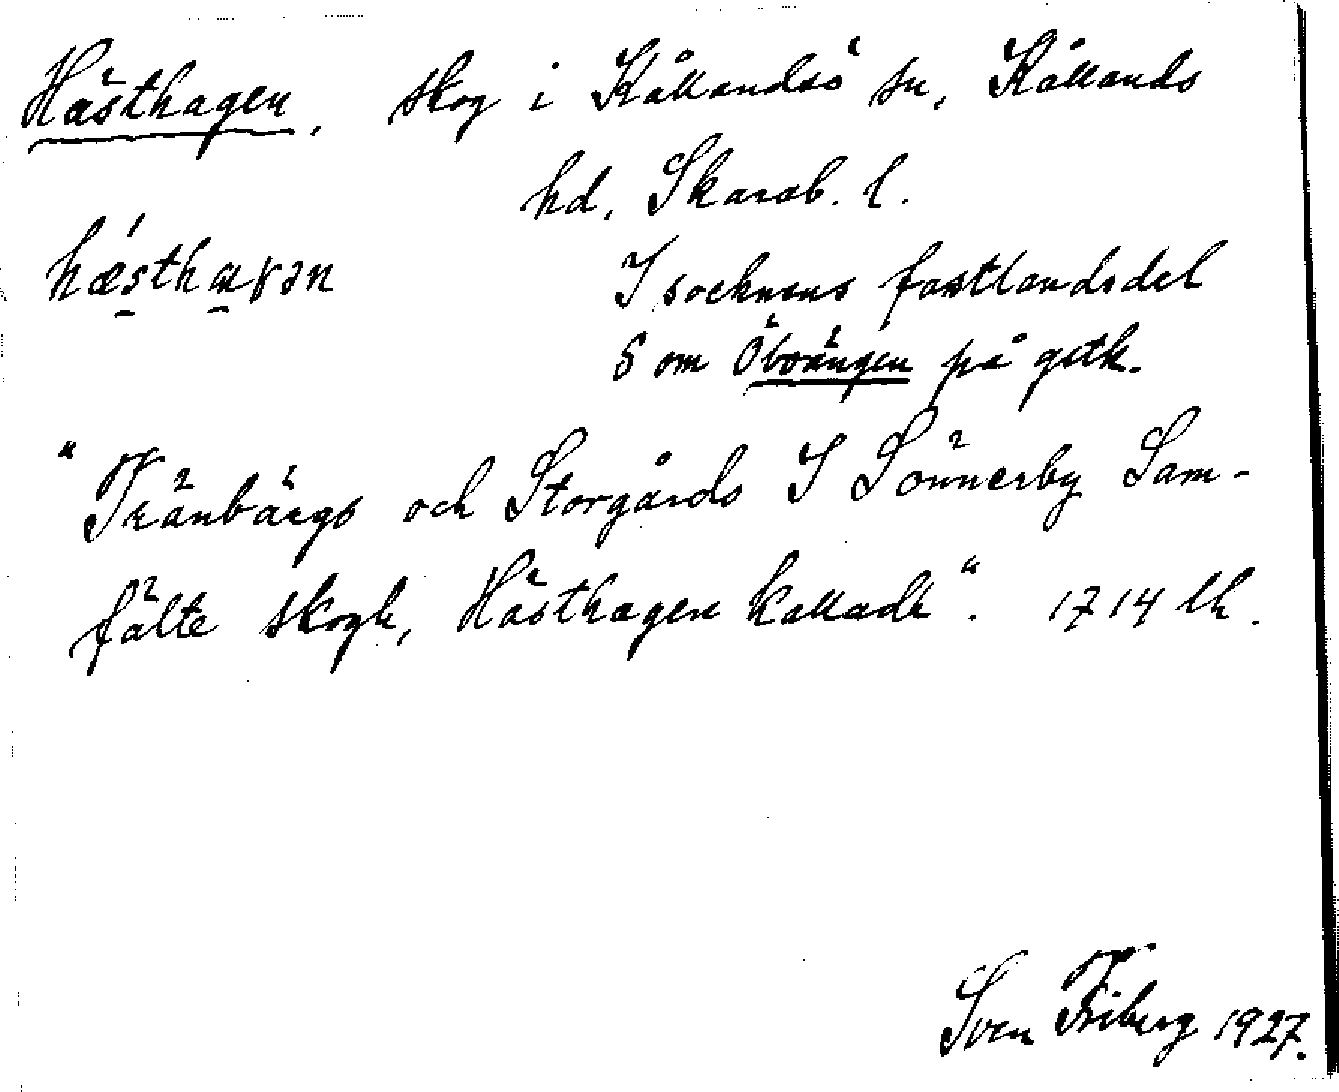 Hästhagen, skog i Kållandsö sn, Kållands
hd, Skarab. l.
hǽ̱stha̱ɣən
I socknens fastlandsdel
S om Öbrängen på gstk.
"Tränbärgs och Storgårds I Sönnerby Sam-
fälte skogh, Hästhagen kalladt". 1714 lh.
Sven Friberg 1927.